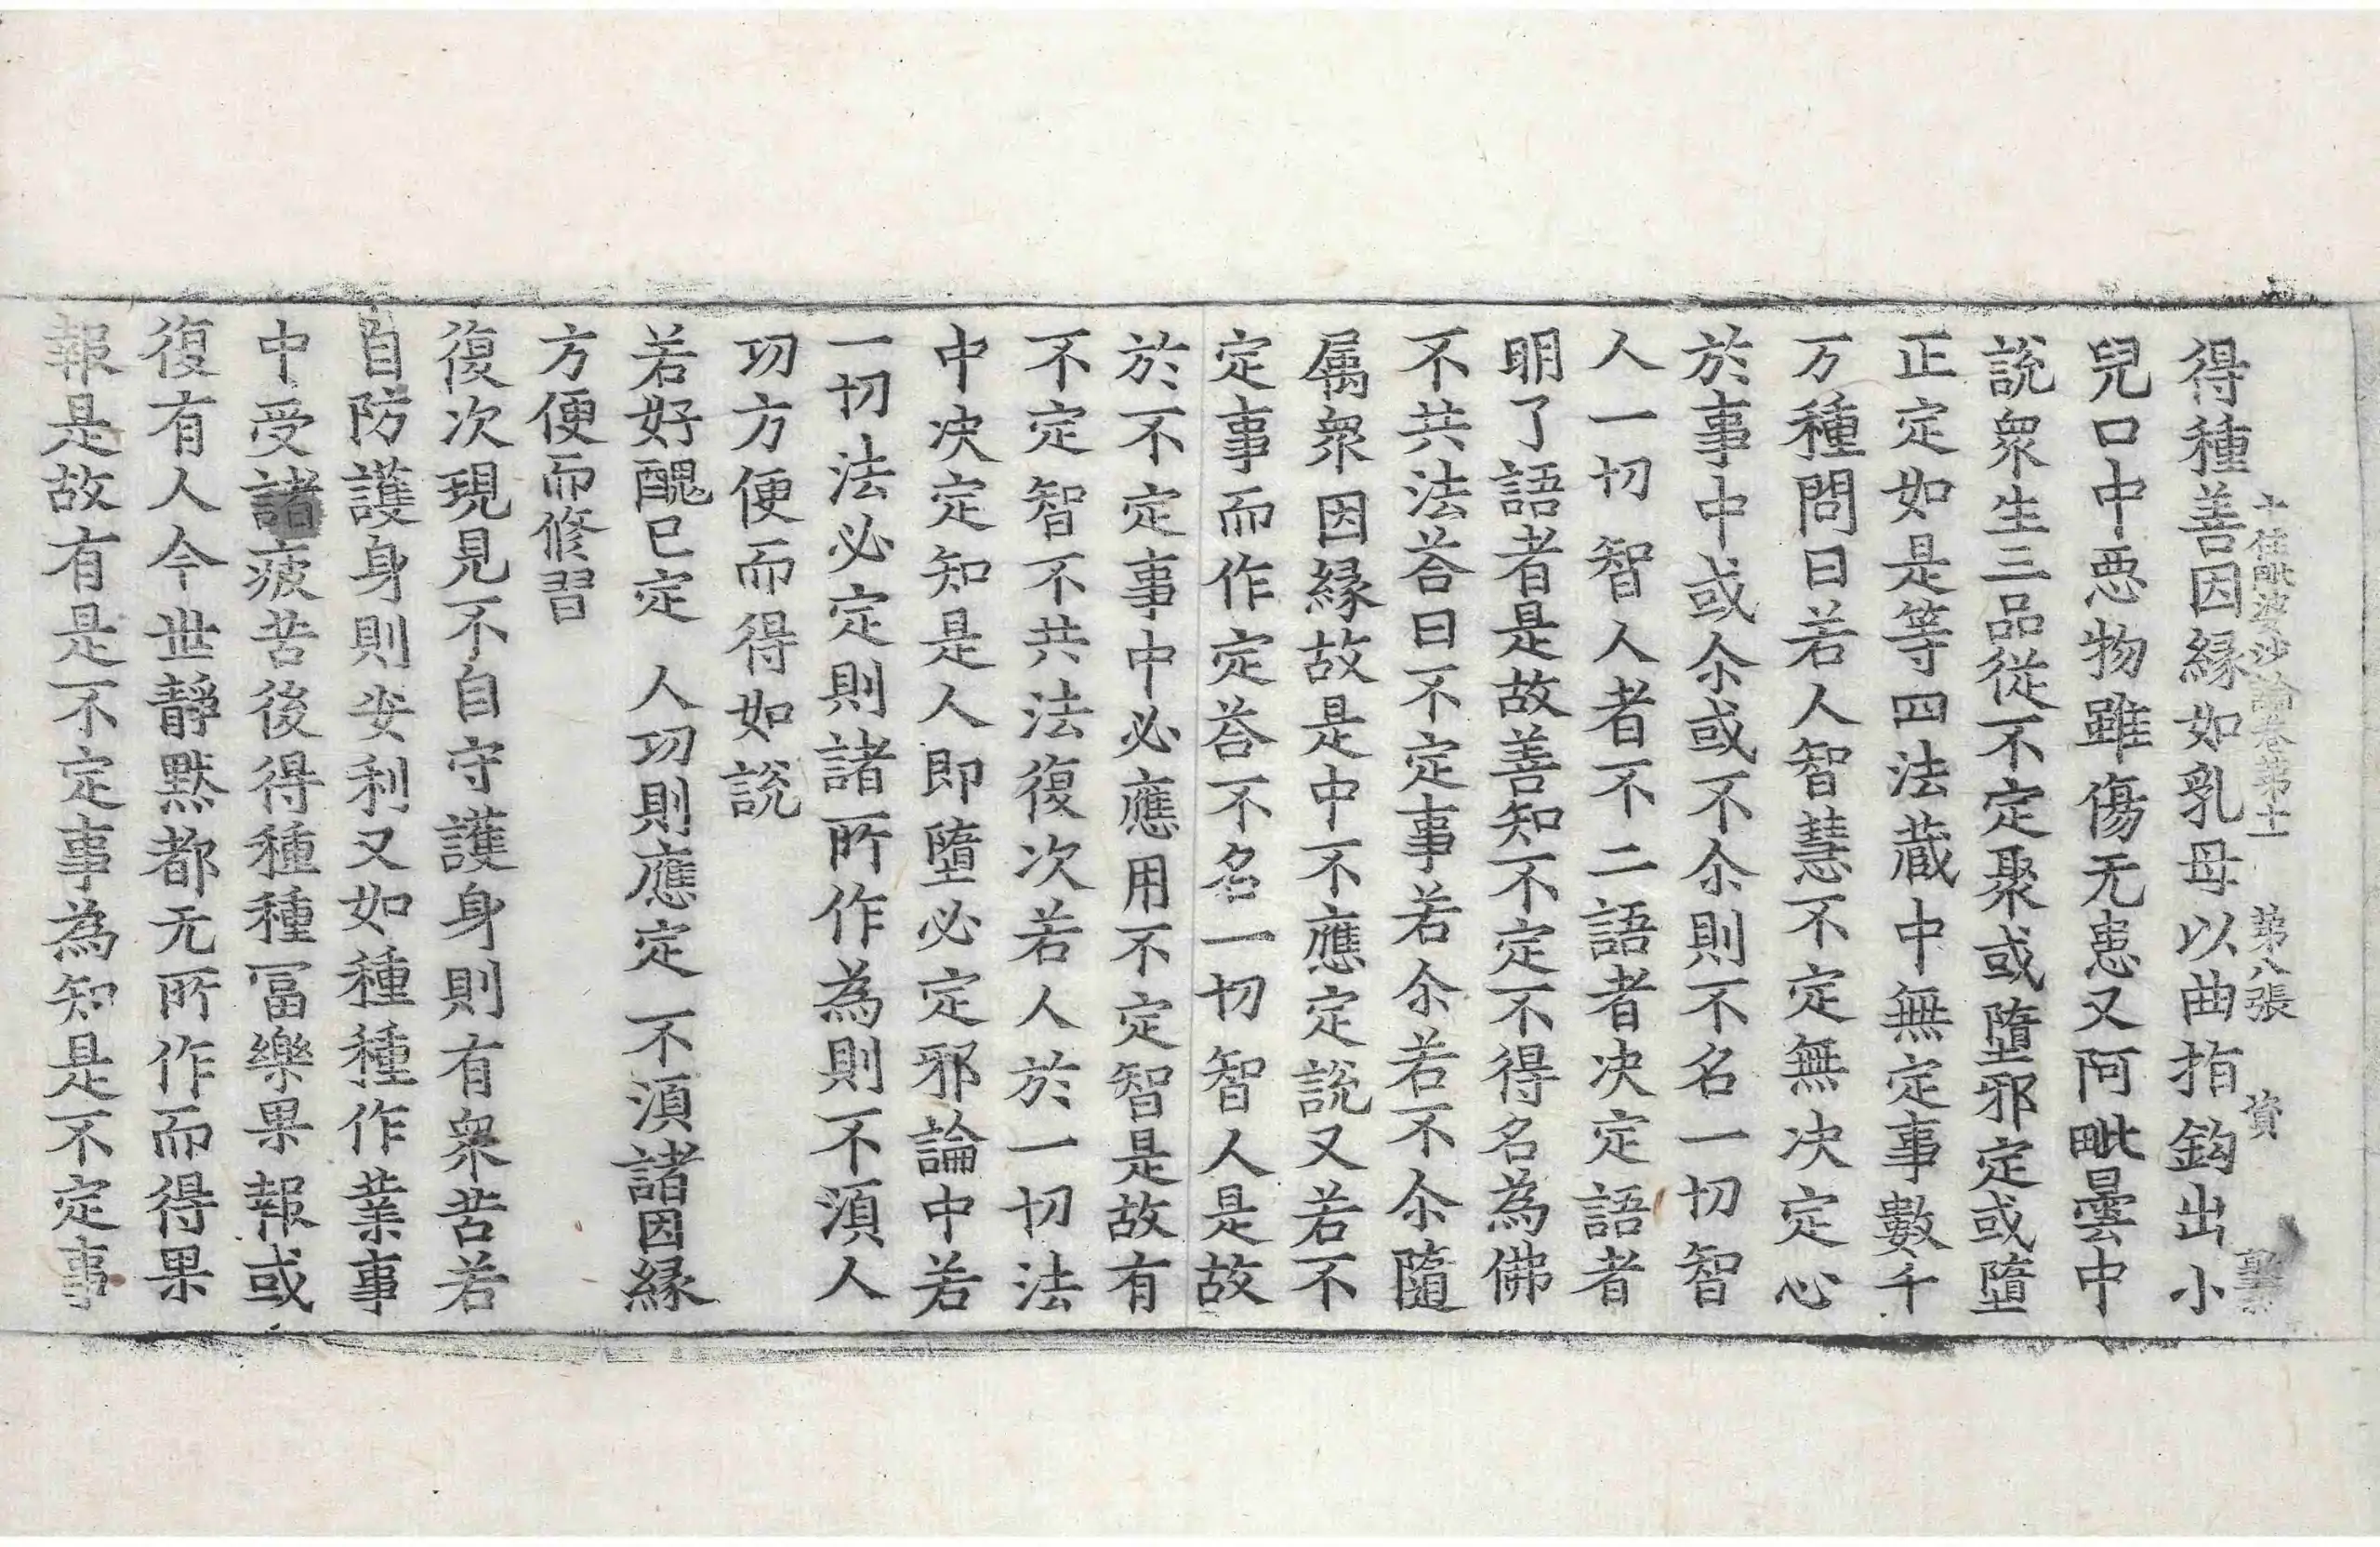 十住毗婆沙論卷第十一　第八張　資　聖
得種善因緣如乳母以曲指鈎出小
兒口中惡物雖傷无患又阿毗曇中
說衆生三品從不定聚或墮邪定或墮
正定如是等四法藏中無定事數千
万種問曰若人智慧不定無决定心
於事中或尒或不尒則不名一切智
人一切智人者不二語者决定語者
明了語者是故善知不定不得名為佛
不共法荅曰不定事若尒若不尒隨
属衆因緣故是中不應定說又若不
定事而作定荅不名一切智人是故
於不定事中必應用不定智是故有
不定智不共法復次若人於一切法
中决定知是人即墮必定邪論中若
一切法必定則諸所作為則不湏人
功方便而得如說
若好醜已定　人功則應定　不湏諸因緣
方便而修習
復次現見不自守護身則有衆苦若
自防護身則安利又如種種作業事
中受諸疲苦後得種種冨樂果報或
復有人今世靜默都无所作而得果
報是故有是不定事為知是不定事